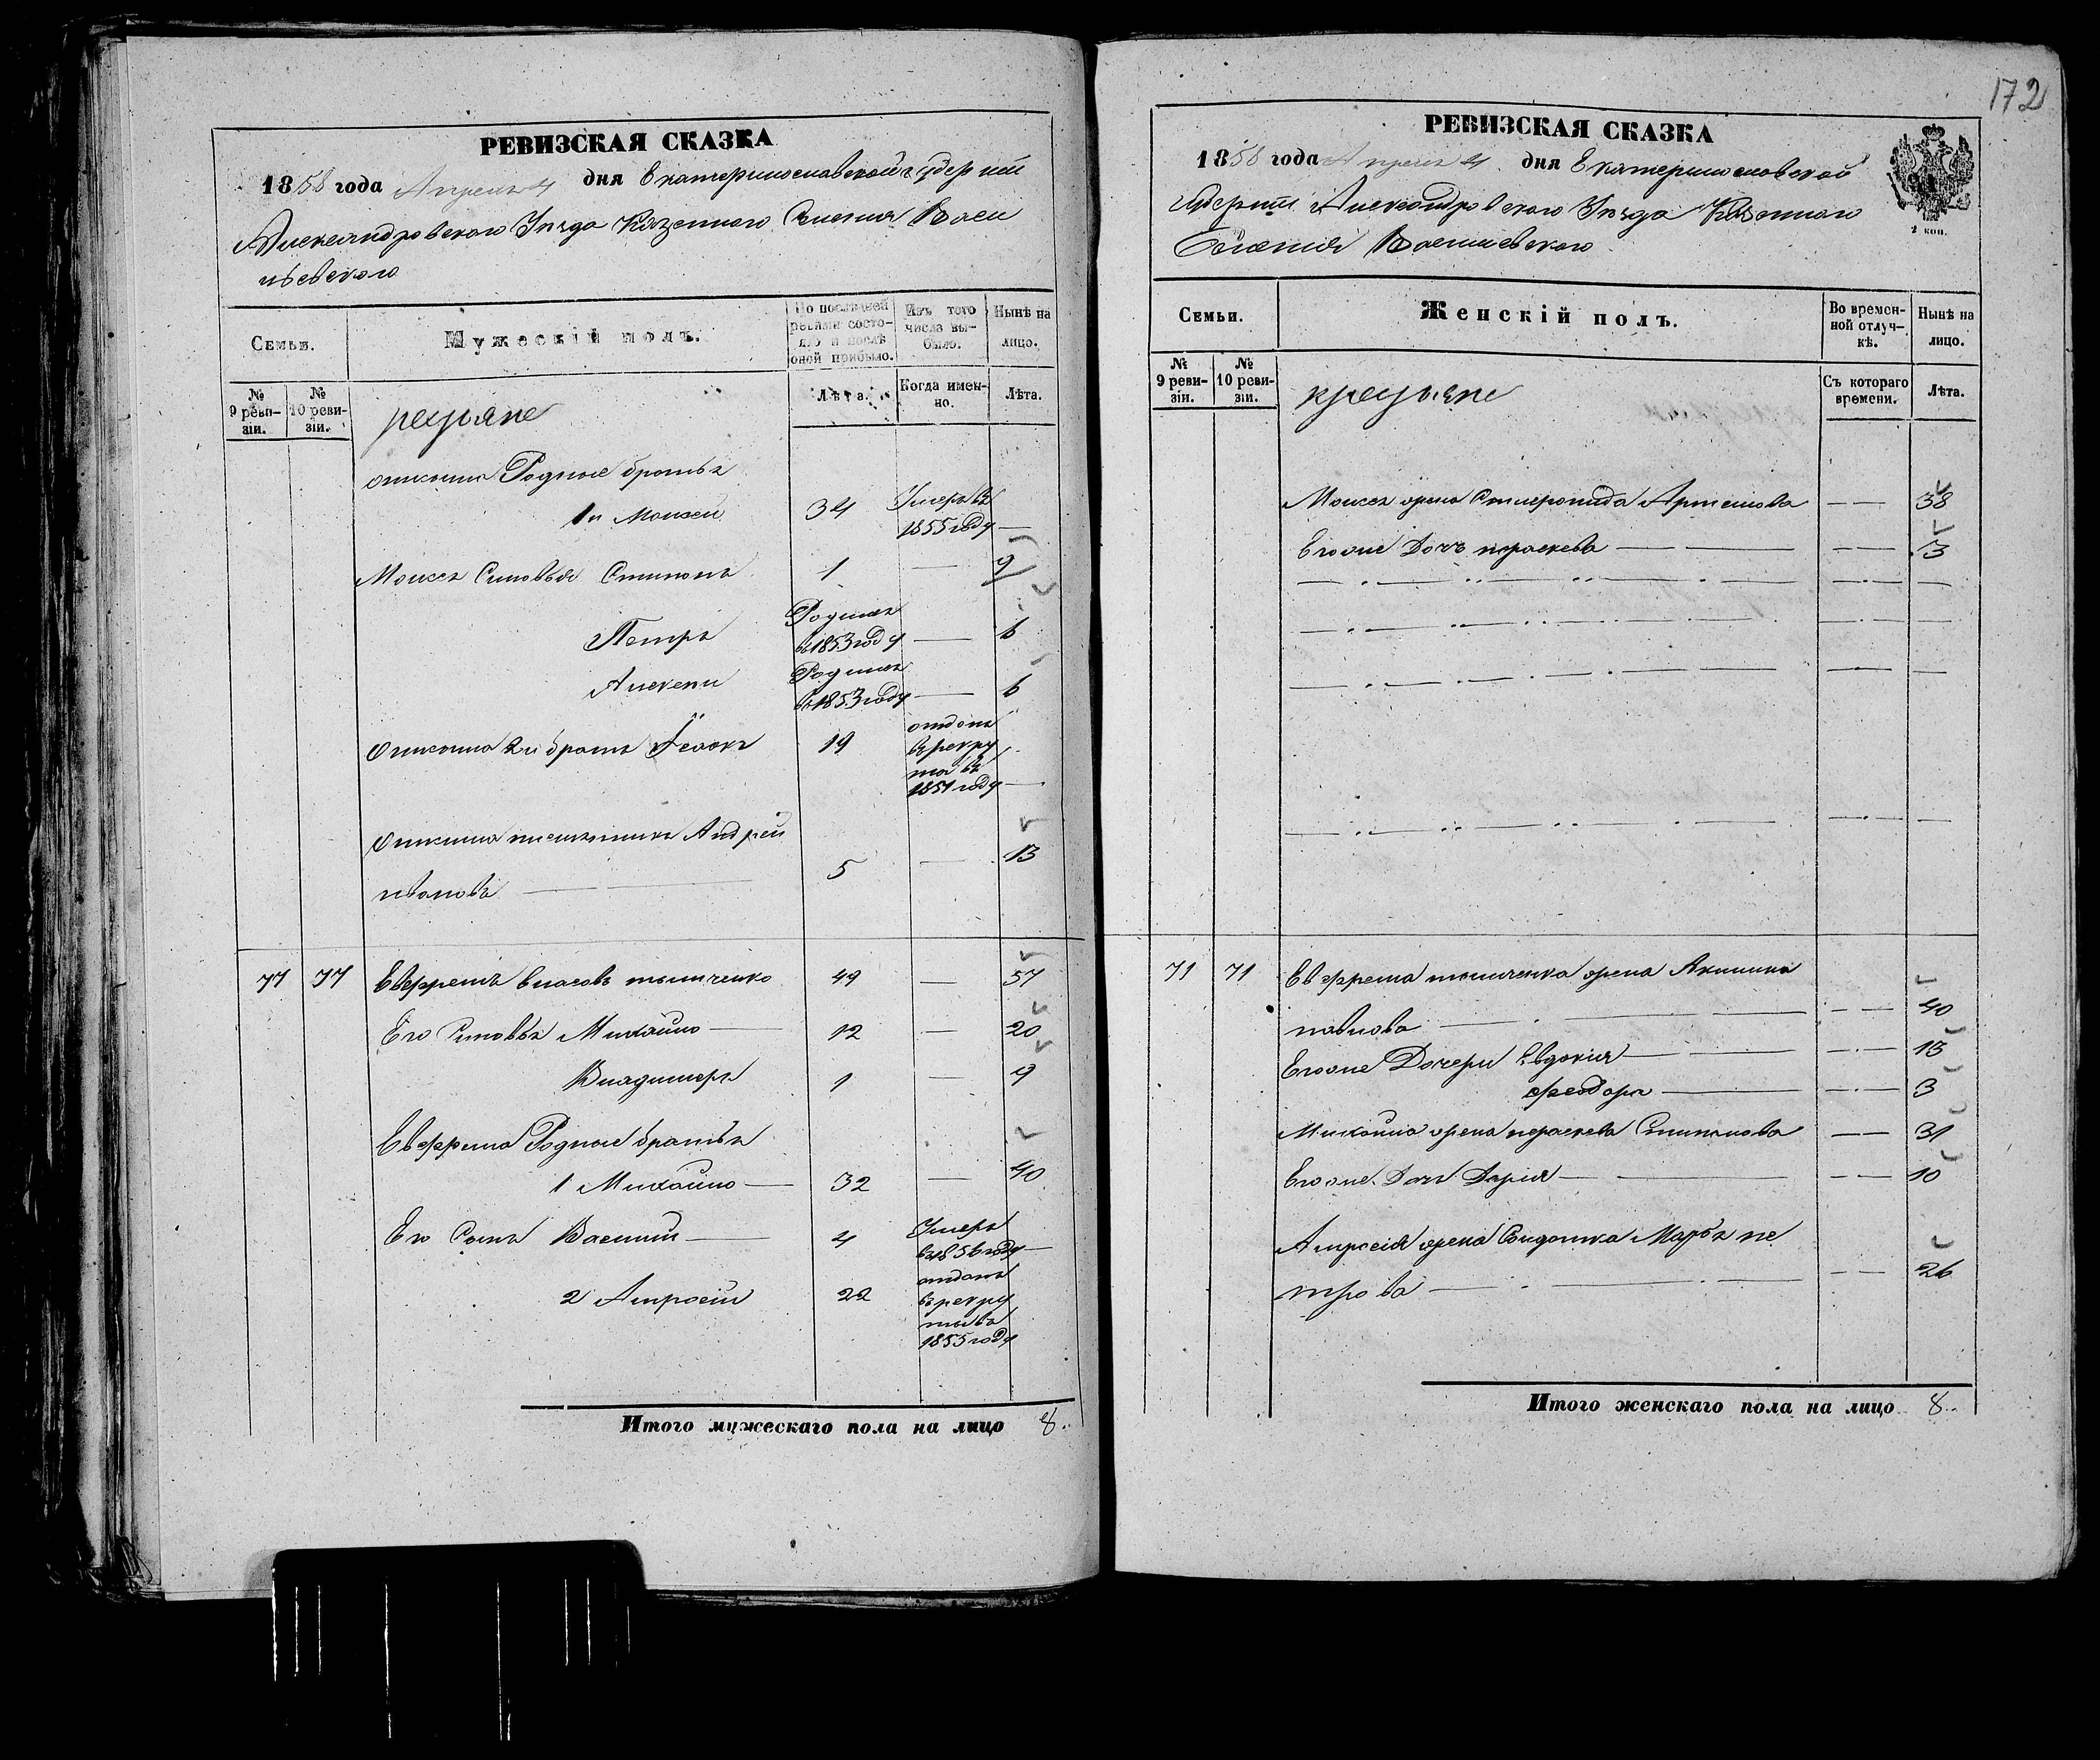 РЕВИЗСКАЯ СКАЗКА
1858 года Апреля 4 дня Екатеринославской губернии
Александровского Уезда Казенного Селения Васи
льевского
Семьи.
Мужескій полъ.
По последней ревизіи состояло и после оной прибыло.
Изъ того числа выбыло.
Нынѣ на лицо.
№ 9 ревизіи.
№ 10 ревизіи.
Лѣта.
Когда именно.
Лѣта.
Родные братья
1й Моисей 34 Умеръ въ 1855 году —
Моисея Сыновья Степанъ 1 — 9
Петръ Родился въ 1853 году — 6
Алексей Родился въ 1853 году — 6
2й братъ 19 отданъ въ рекруты въ 1851 году —
племянникъ Андрей
Ивановъ — 5 — 13
71 71 Евфремъ Власовъ 49 — 57
Его Сыновья Михайло — 12 — 20
Владимеръ 1 — 9
Евфрема Родные братья
1 Михайло — 32 — 40
Его Сынъ Василий — 4 Умеръ въ 1856 году —
2 Амросий 22 отданъ въ рекруты въ 1855 году
Итого мужескаго пола на лицо 8.
172
РЕВИЗСКАЯ СКАЗКА
1858 года Апреля 4 дня Екатеринославской
Губернии Александровского Уезда Казенного
Селения Васильевского
2 коп.
Семьи.
Женскій полъ.
Во временной отлучкѣ.
Нынѣ на лицо.
№ 9 ревизіи.
№ 10 ревизіи.
крестьяне
Съ котораго времени.
Лѣта.
Моисея жена Артемова — — 38
Его же Дочь параскева — — — — 13
71 71 Евфрема жена Акилина
павлова — — — 40
Его же Дочери Евдокия — — — 13
Феодора — — — 3
Михайла жена параскева Степанова — — 31
Его же Дочь Дария — — — — 10
Амросия жена Солдатка Марфа пе
трова — — — — 26
Итого женскаго пола на лицо 8.